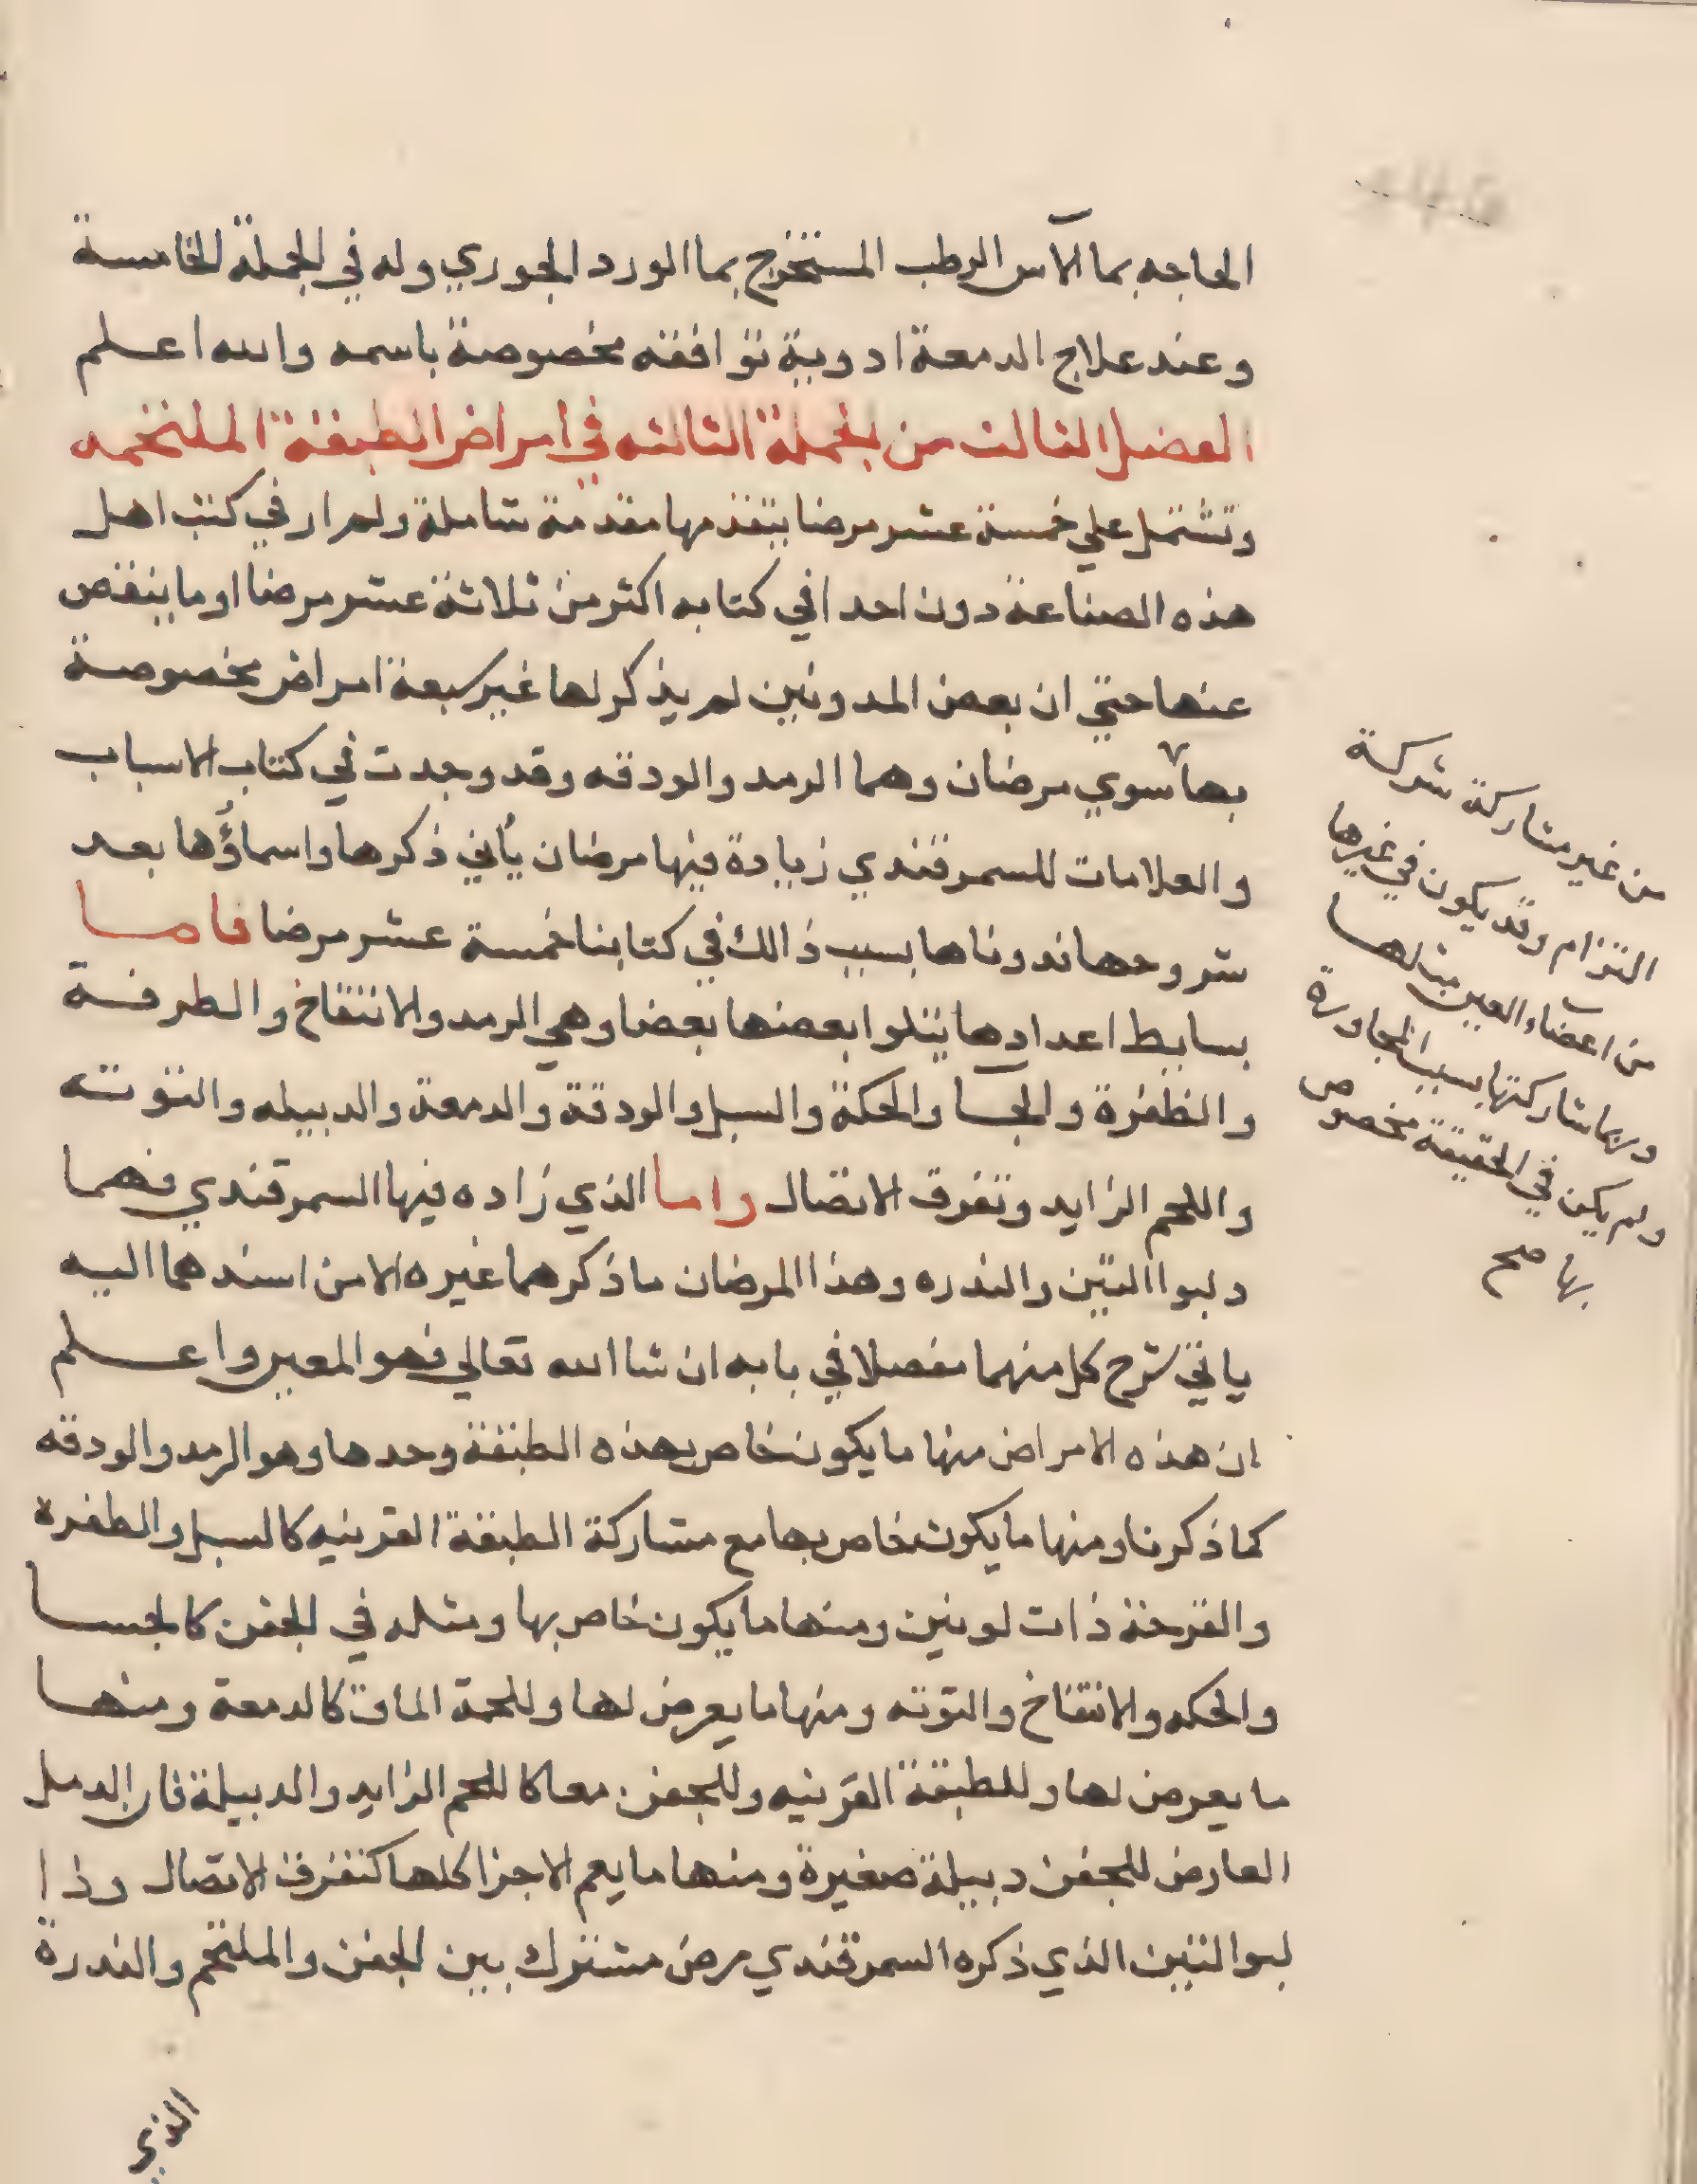 الحاجه بما الآس الرطب المستخرج بما الورد الجوري وله في الجملة الخامسة
وعند علاج الدمعة ادوية توافقه مخصوصة باسمه والله اعلم
الفصل الثالث من الجملة الثالثه في امراض الطبقة الملتحمه
وتشتمل علي خمسة عشر مرضا يتقدمها مقدمة شاملة ولم ار في كتب اهل
هذه الصناعة دون احدا في كتابه اكثر من ثلاثة عشر مرضا او ما ينقص
عنها حتي ان بعض المدونين لم يذكر لها غير سبعة امراض مخصوصة
بها سوي مرضان وهما الرمد والودقه وقد وجدت في كتاب الاسباب
والعلامات للسمرقندي زيادة فيها مرضان يأتي ذكرها واسماؤها بعد
شروحها فدوناها بسبب ذالك في كتابنا خمسة عشر مرضا فاما
بسايط اعدادها يتلوا بعضها بعضا وهي الرمد والانتفاخ والطرفة
والظفرة والجسا والحكة والسبل والودقة والدمعة والدبيله والتوته
واللحم الزايد وتفرق الاتصال واما الذي زاده فيها السمرقندي فهما
دلبوا التين والندره وهذا المرضان ما ذكرهما غيره الا من اسندهما اليه
ياتي شرح كل منهما مفصلا في بابه ان شا الله تعالي فهو المعين واعلم
ان هذه الامراض منها ما يكون خاص بهذه الطبقة وحدها وهو الرمد والودقه
كما ذكرنا ومنها ما يكون خاص بها مع مشاركة الطبقة القرنيه كالسبل والظفرة
والقرحة ذات لونين ومنها ما يكون خاص بها ومثله في الجفن كالجسا
والحكه والانتفاخ والتوته ومنها ما يعرض لها وللحمة الماق كالدمعة ومنها
ما يعرض لها وللطبقة القرنيه وللجفن معا كاللحم الزايد والدبيلة فان الدمل
العارض للجفن دبيلة صغيرة ومنها ما يعم الاجزا كلها كتفرق الاتصال وذا
لبوا التين الذي ذكره السمرقندي مرض مشترك بين الجفن والملتحم والندرة
الذي
من غير مشاركة شركة
التزام وقد يكون في غيرها
من اعضاء العين مثلها
وربما شاركتها بسبب المجاورة
ولم يكن في الحقيقة مخصوص
بها صح